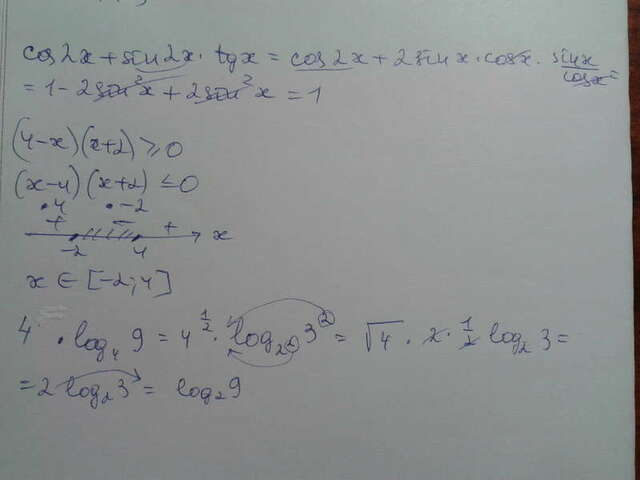 cos2x + sin2x · tgx = cos2x + 2sinx · cosx · sinx/cosx =
= 1 - 2sin²x + 2sin²x = 1
(4-x)(x+2) ≥ 0
(x-4)(x+2) ≤ 0
•4 •-2
+ - + x
-2 4
x ∈ [-2; 4]
4 · log₄ 9 = 4^(1/2) · log₂² 3² = √4 · 2 · 1/2 log₂ 3 =
= 2 log₂ 3 = log₂ 9